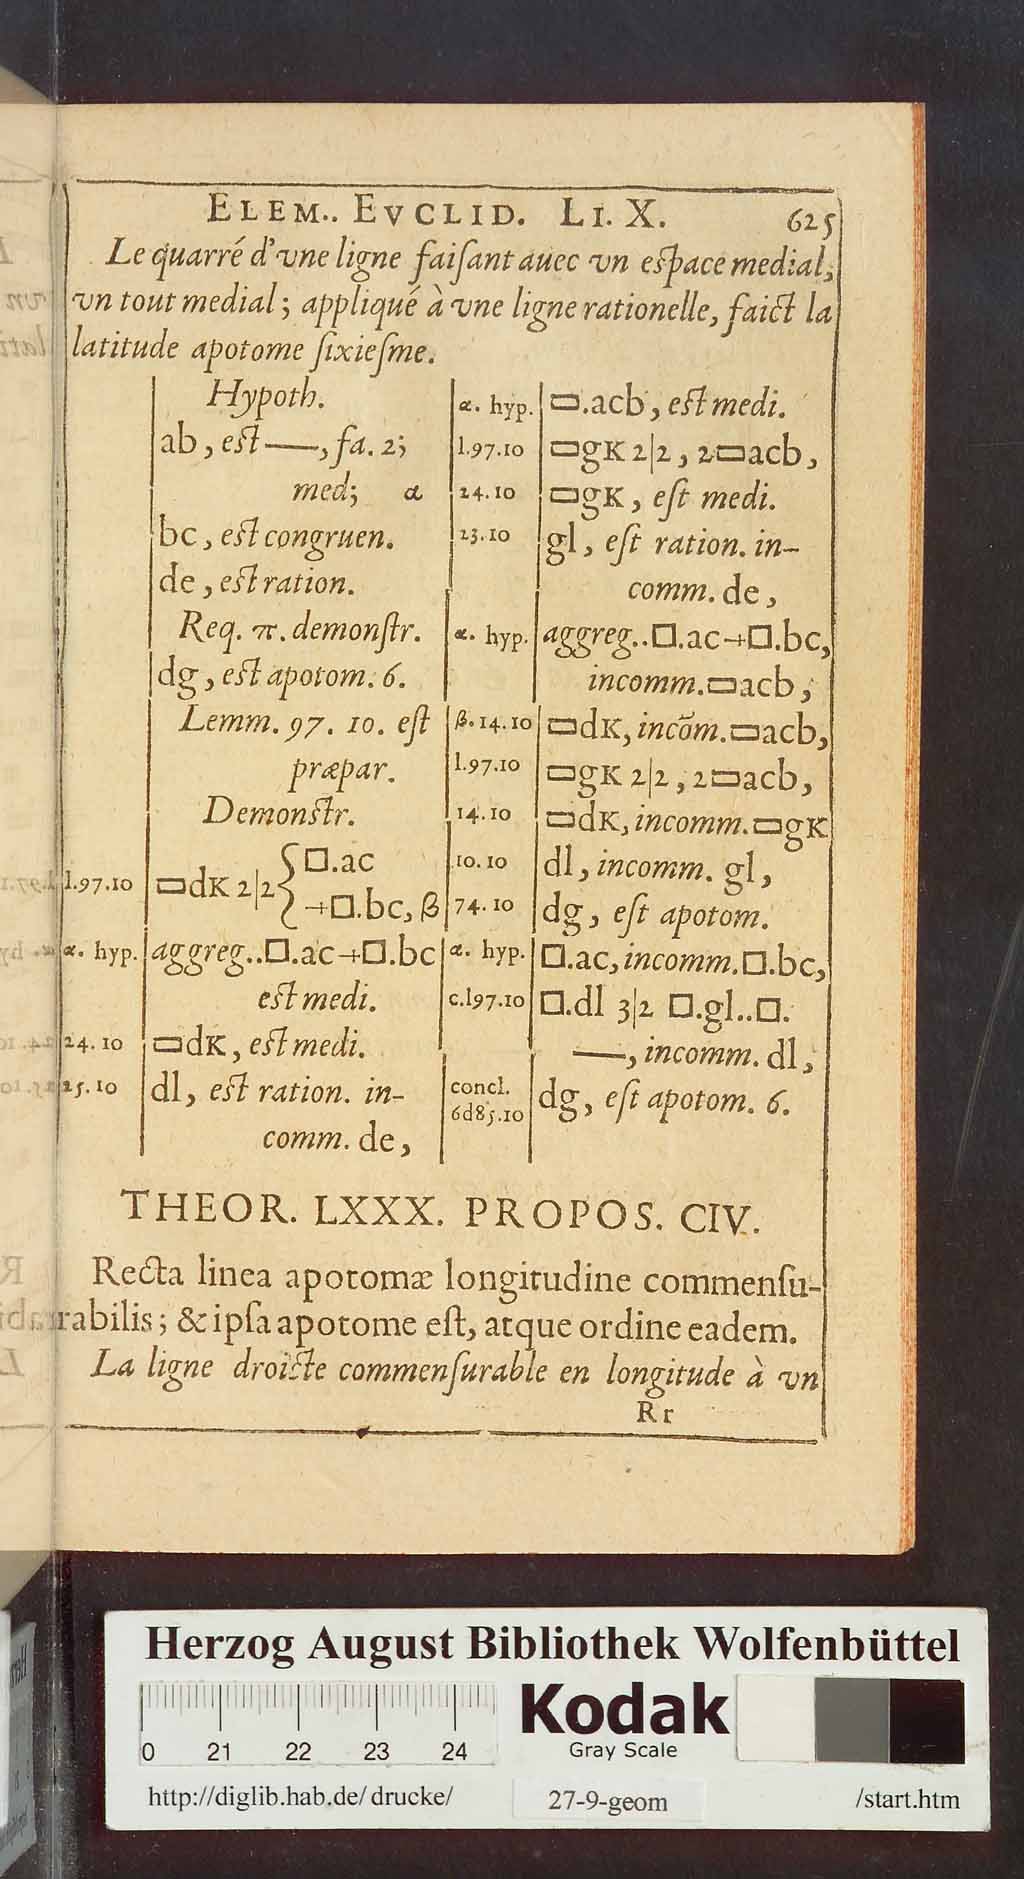 ELEM.. EVCLID. LI. X. 625
Le quarré d'vne ligne faiſant auec vn eſpace medial,
vn tout medial; appliqué à vne ligne rationelle, faict la
latitude apotome ſixieſme.
Hypoth.
ab, eſt —, fa. 2;
med; α
bc, eſt congruen.
de, eſt ration.
Req. π. demonſtr.
dg, eſt apotom. 6.
Lemm. 97. 10. eſt
præpar.
Demonſtr.
l.97.10 ▭dK 2|2 { □.ac
+□.bc, β
α. hyp. aggreg..□.ac+□.bc
eſt medi.
24.10 ▭dK, eſt medi.
25.10 dl, eſt ration. in-
comm. de,
α. hyp. ▭.acb, eſt medi.
l.97.10 ▭gK 2|2, 2▭acb,
24.10 ▭gK, eſt medi.
23.10 gl, eſt ration. in-
comm. de,
α. hyp. aggreg..□.ac+□.bc,
incomm.▭acb,
β.14.10 ▭dK, incõm.▭acb,
l.97.10 ▭gK 2|2, 2▭acb,
14.10 ▭dK, incomm.▭gK
10.10 dl, incomm. gl,
74.10 dg, eſt apotom.
α. hyp. □.ac, incomm.□.bc,
c.l97.10 □.dl 3|2 □.gl..□.
—, incomm. dl,
concl.
6d85.10 dg, eſt apotom. 6.
THEOR. LXXX. PROPOS. CIV.
Recta linea apotomæ longitudine commenſu-
rabilis; & ipſa apotome eſt, atque ordine eadem.
La ligne droicte commenſurable en longitude à vn
Rr
Herzog August Bibliothek Wolfenbüttel
0 21 22 23 24
Kodak
Gray Scale
http://diglib.hab.de/drucke/ 27-9-geom /start.htm